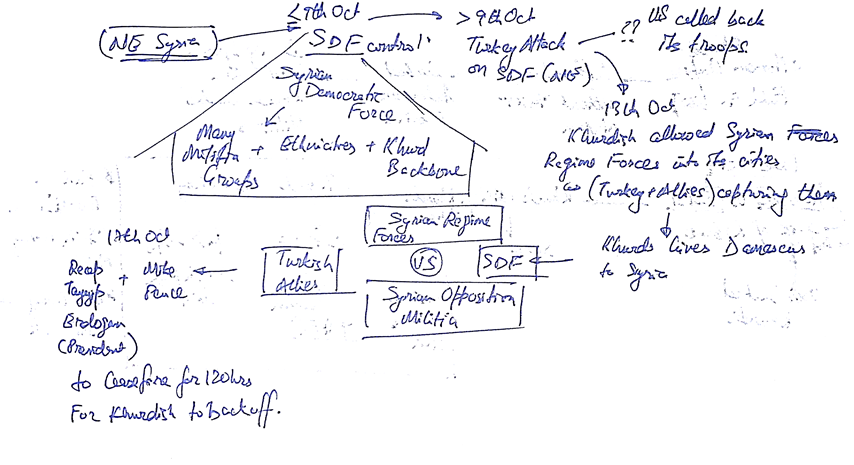 <9th Oct
>9th Oct
(NE Syria)
SDF control.
Turkey Attack
on SDF (NES)
??
US called back
its troops.
Syrian
Democratic
Force
Many
Militia
Groups
+ Ethnicities +
Khurd
Backbone
13th Oct
Khurdish allowed Syrian Forces
Regime Forces into its cities
(Turkey + Allies) capturing them
Khurds Gives Damascus
to Syria
Syrian Regime
Forces
Turkish
Allies
VS
SDF
Syrian Opposition
Militia
17th Oct
Recep
Tayyip
Erdogen
(President)
+
Mike
Pence
to Ceasefire for 120hrs
For Khurdish to Back off.